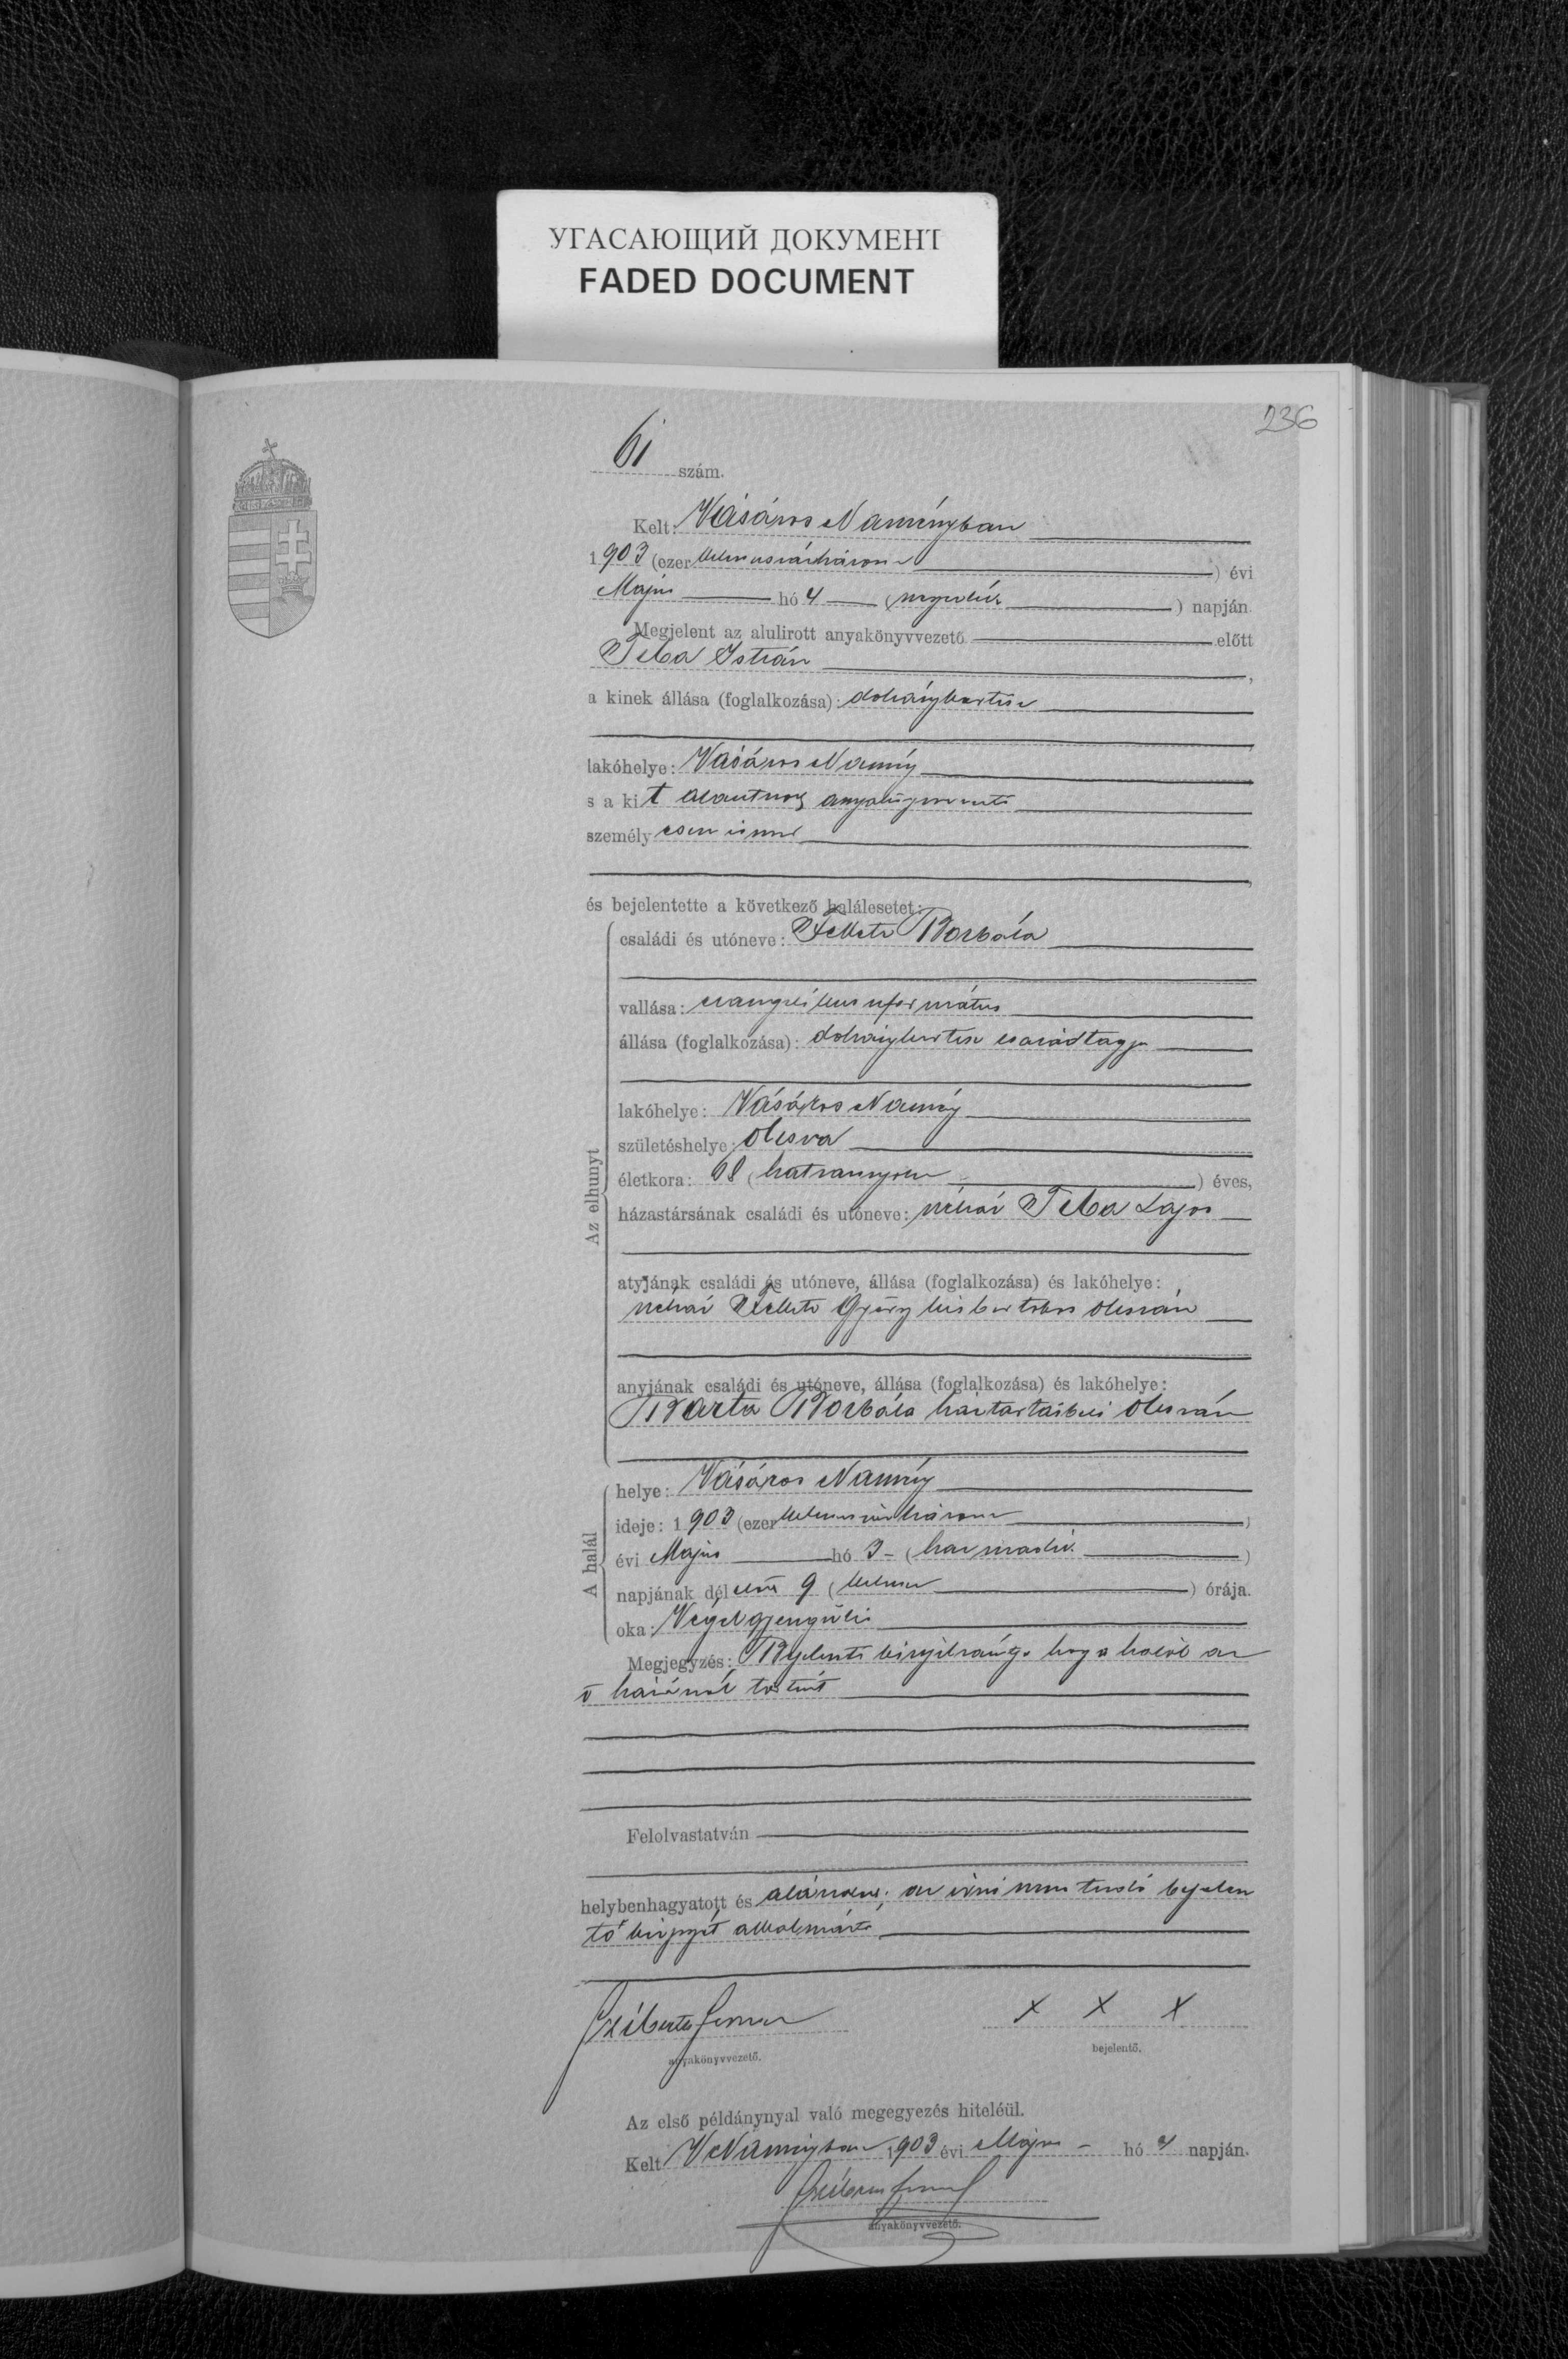 УГАСАЮЩИЙ ДОКУМЕНТ
FADED DOCUMENT
236
61 szám.
Kelt: Vásáros Naményban
1903 (ezer kilenczszázhárom) évi
Május hó 4 (negyedik) napján.
Megjelent az alulirott anyakönyvvezető előtt
Teba István,
a kinek állása (foglalkozása): dohánykertész
lakóhelye: Vásáros Namény
s a kit alantnevezett
személyesen ismer
és bejelentette a következő halálesetet:
Az elhunyt
családi és utóneve: Fekete Borbála
vallása: evangélikus református
állása (foglalkozása): dohánykertész családtagja
lakóhelye: Vásáros Namény
születéshelye: Olcsva
életkora: 68 (hatvannyolc) éves,
házastársának családi és utóneve: néhai Teba Lajos
atyjának családi és utóneve, állása (foglalkozása) és lakóhelye:
néhai Fekete György kisbirtokos Olcsván
anyjának családi és utóneve, állása (foglalkozása) és lakóhelye:
Barta Borbála háztartásbeli Olcsván
A halál
helye: Vásáros Namény
ideje: 1903 (ezer kilenczszázhárom)
évi Május hó 3 (harmadik)
napjának délelőtt 9 (kilencz) órája.
oka: Végelgyengülés
Megjegyzés: hogy a halál az
ő házánál történt
Felolvastatván
helybenhagyatott és aláíratott; az írni nem tudó bejelen
tő kézjegyét alkalmazta
x x x
anyakönyvvezető.
bejelentő.
Az első példánynyal való megegyezés hiteléül.
Kelt V Naményban 1903 évi Május hó 4 napján.
anyakönyvvezető.